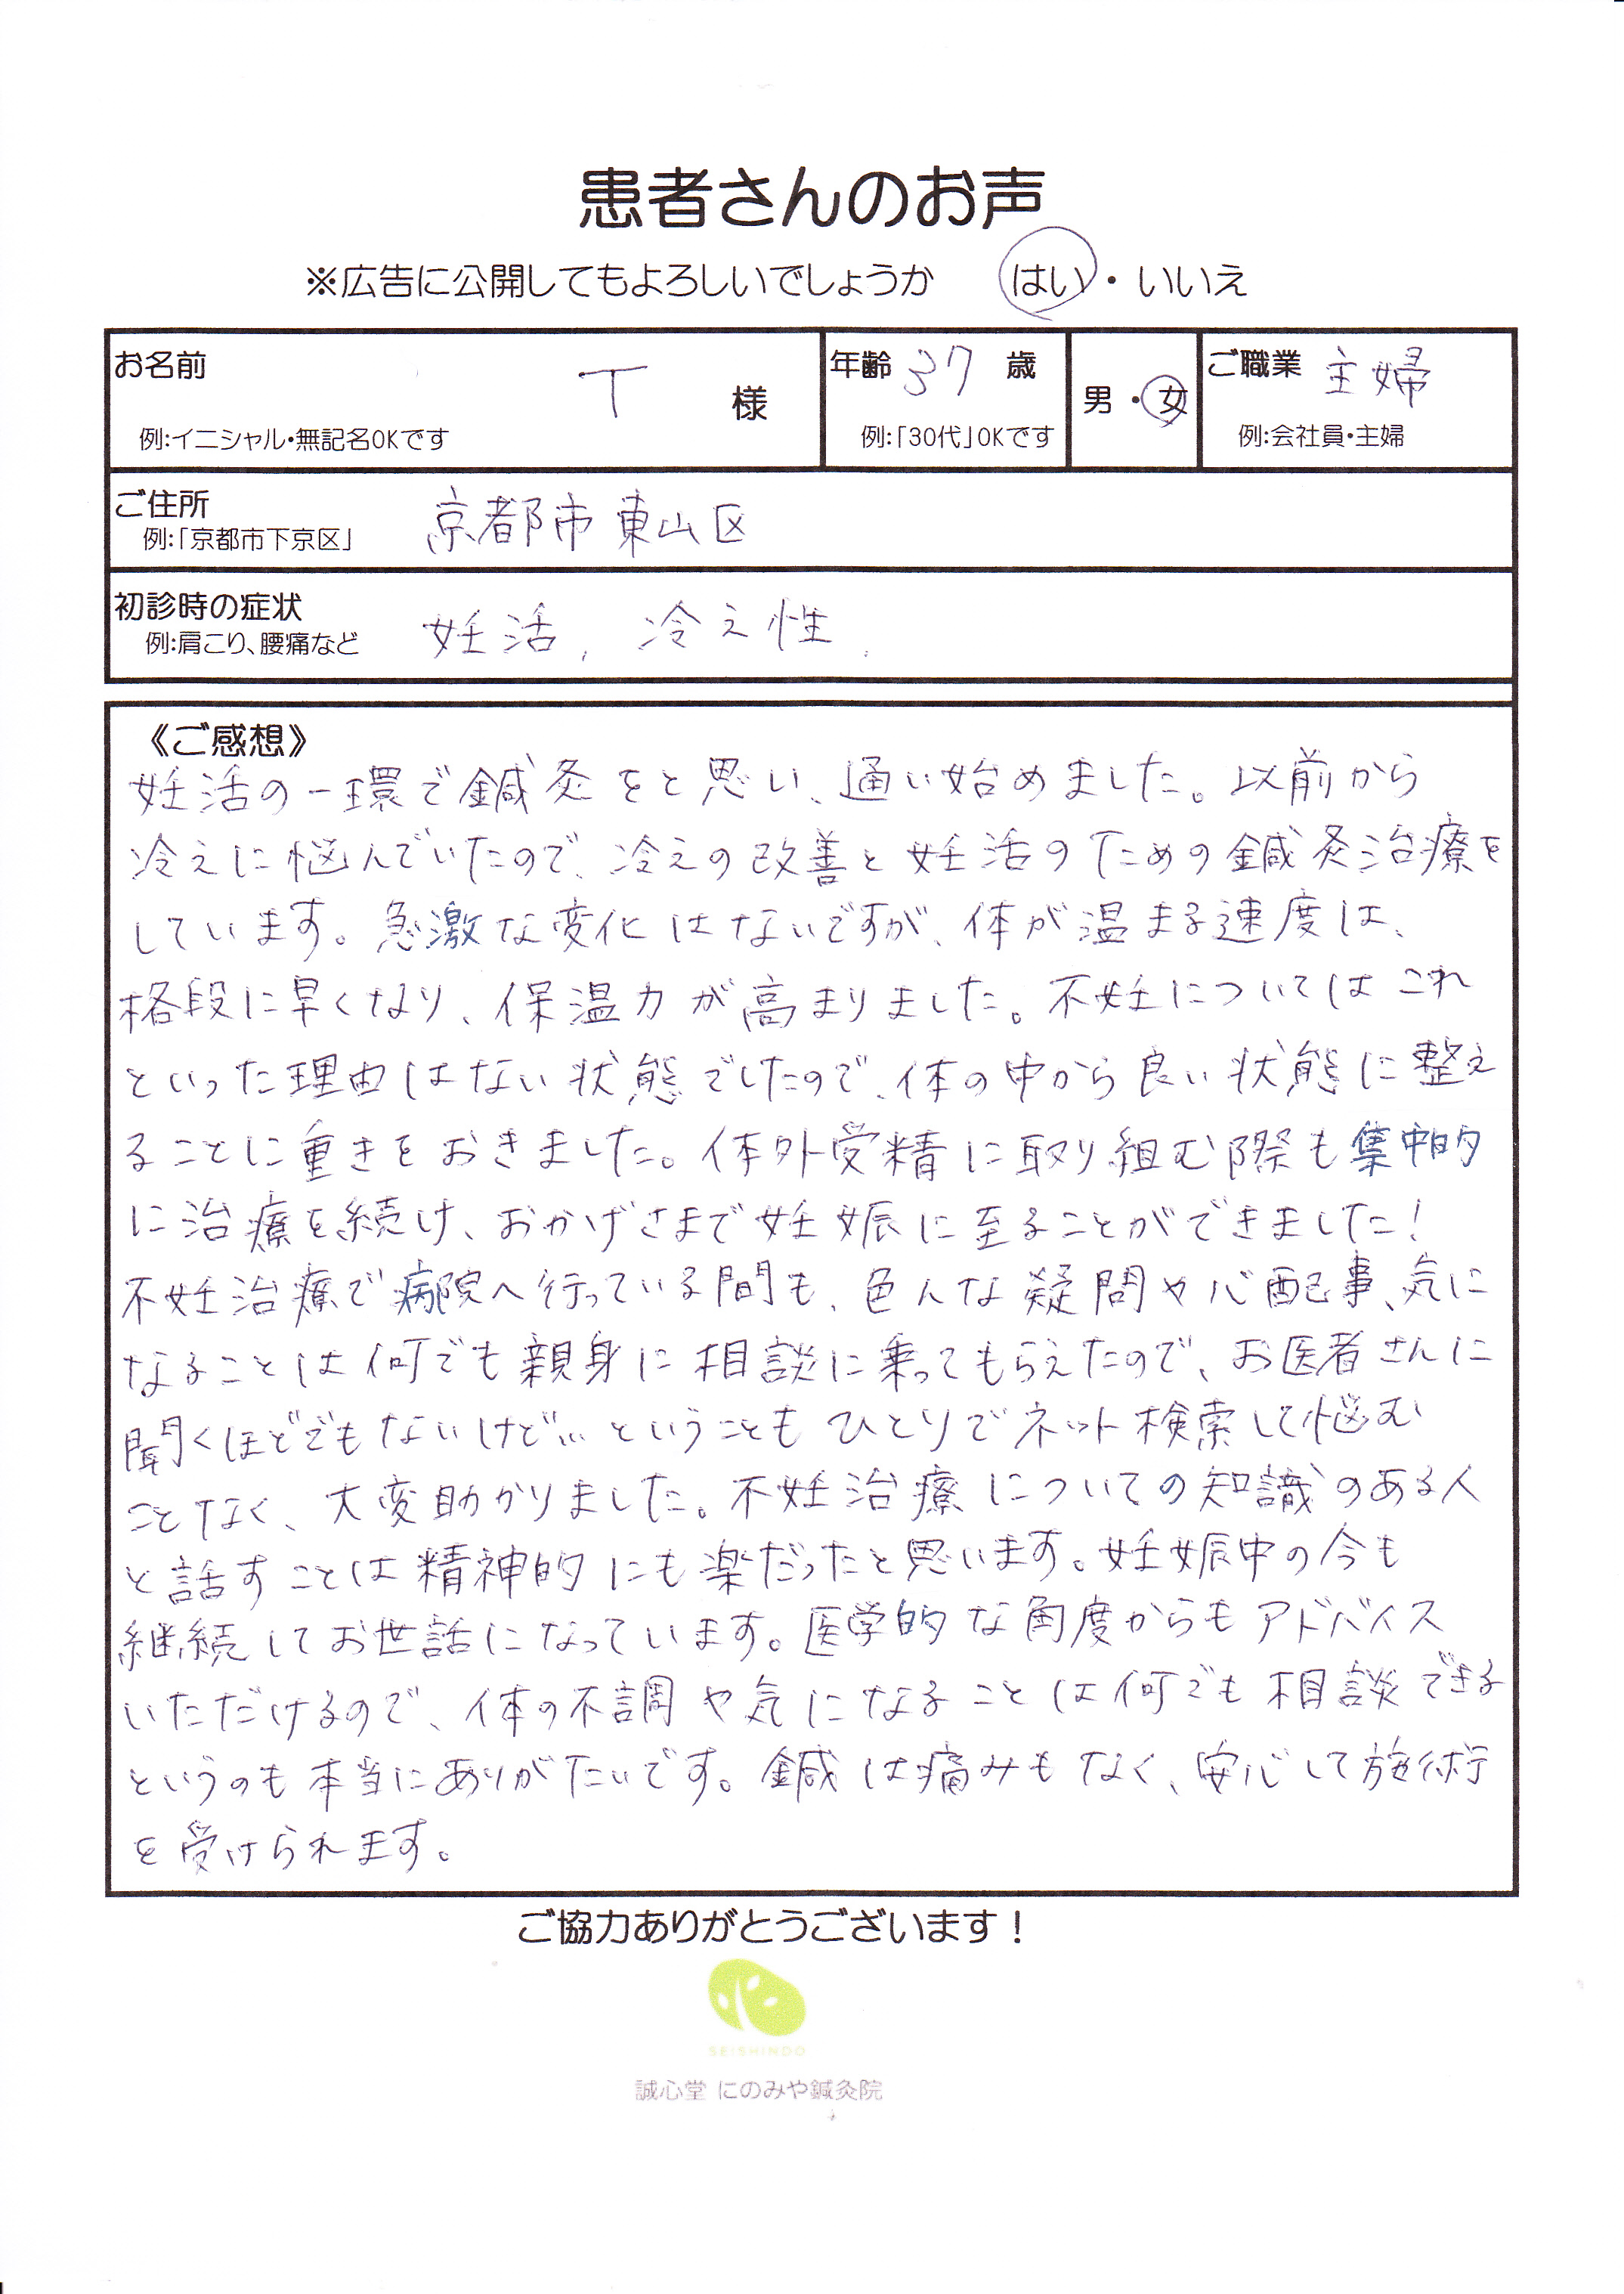 患者さんのお声
※広告に公開してもよろしいでしょうか はい・いいえ
お名前 T 様
例:イニシャル・無記名OKです
年齢 37 歳
例:「30代」OKです
男・女
ご職業 主婦
例:会社員・主婦
ご住所 京都市東山区
例:「京都市下京区」
初診時の症状 妊活、冷え性、
例:肩こり、腰痛など
《ご感想》
妊活の一環で鍼灸をと思い、通い始めました。以前から
冷えに悩んでいたので、冷えの改善と妊活のための鍼灸治療を
しています。急激な変化はないですが、体が温まる速度は、
格段に早くなり、保温力が高まりました。不妊についてはこれ
といった理由はない状態でしたので、体の中から良い状態に整え
ることに重きをおきました。体外受精に取り組む際も集中的
に治療を続け、おかげさまで妊娠に至ることができました!
不妊治療で病院へ行っている間も、色んな疑問や心配事、気に
なることは何でも親身に相談に乗ってもらえたので、お医者さんに
聞くほどでもないけど…ということもひとりでネット検索して悩む
ことなく、大変助かりました。不妊治療についての知識のある人
と話すことは精神的にも楽だったと思います。妊娠中の今も
継続してお世話になっています。医学的な角度からもアドバイス
いただけるので、体の不調や気になることは何でも相談できる
というのも本当にありがたいです。鍼は痛みもなく、安心して施術
を受けられます。
ご協力ありがとうございます!
SEISHINDO
誠心堂 にのみや鍼灸院